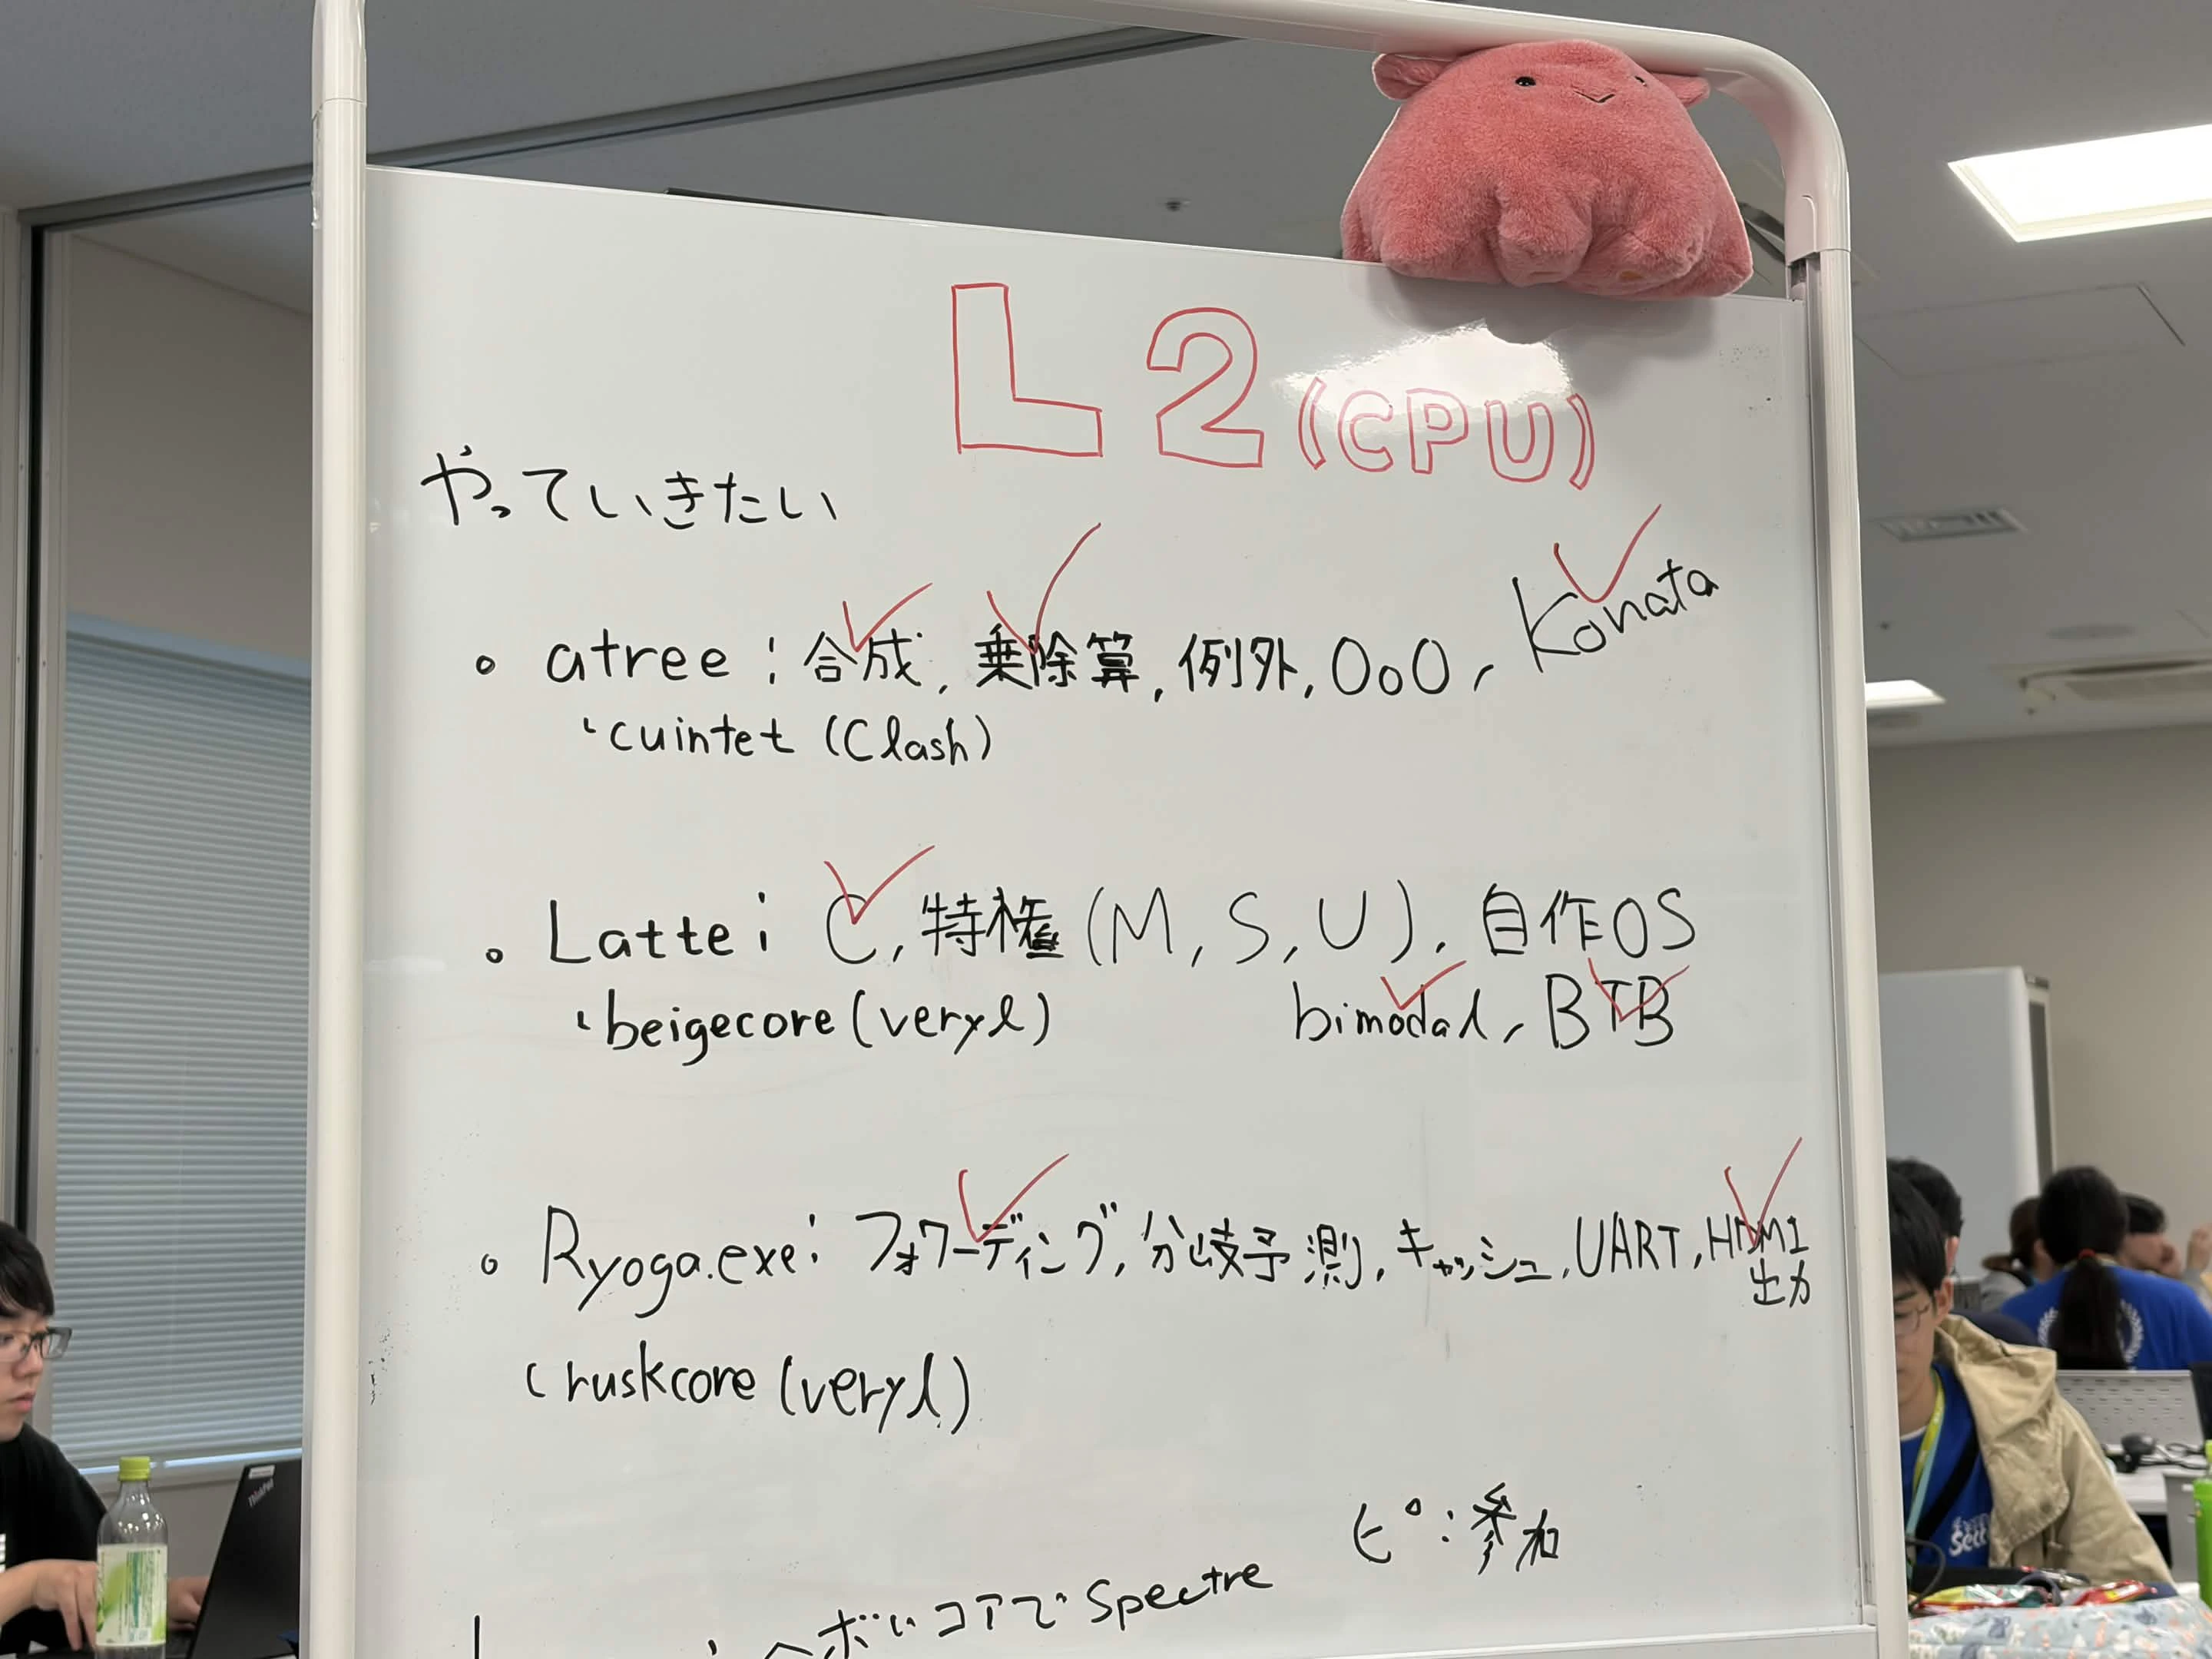 L2(CPU)
やっていきたい
。atree : 合成, 乗除算, 例外, OoO, Konata
cuintet (Clash)
。Latte : C, 特権 (M, S, U), 自作OS
beigecore (veryl)
bimodal, BTB
。Ryoga.exe : フォワーディング, 分岐予測, キャッシュ, UART, HDMI
出力
ruskcore (veryl)
ピ : 参加
ヘボいコアでSpectre
ThinkPad